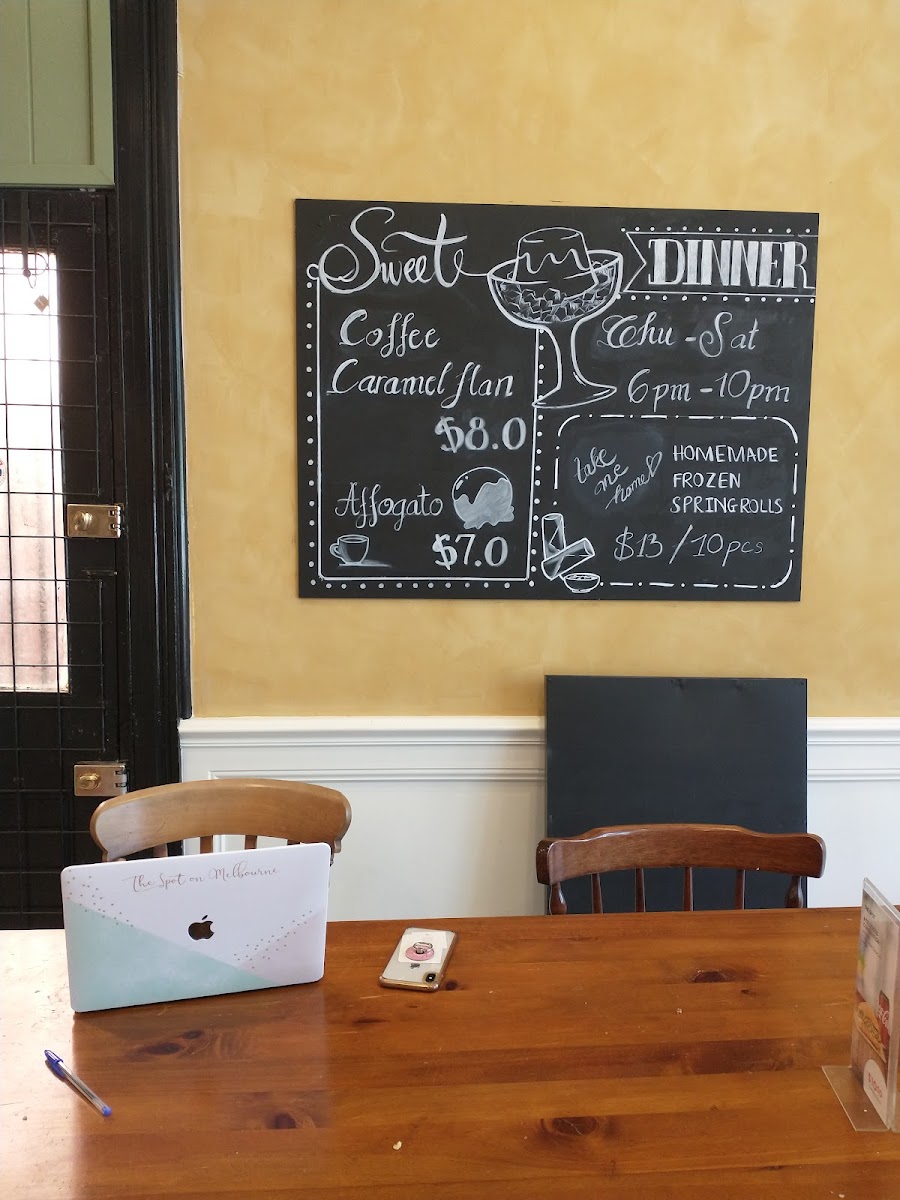 Sweet
Coffee
Caramel flan
$8.0
Affogato
$7.0
DINNER
Thu - Sat
6pm - 10pm
take
me
home
HOMEMADE
FROZEN
SPRINGROLLS
$13 / 10pcs
The Spot on Melbourne